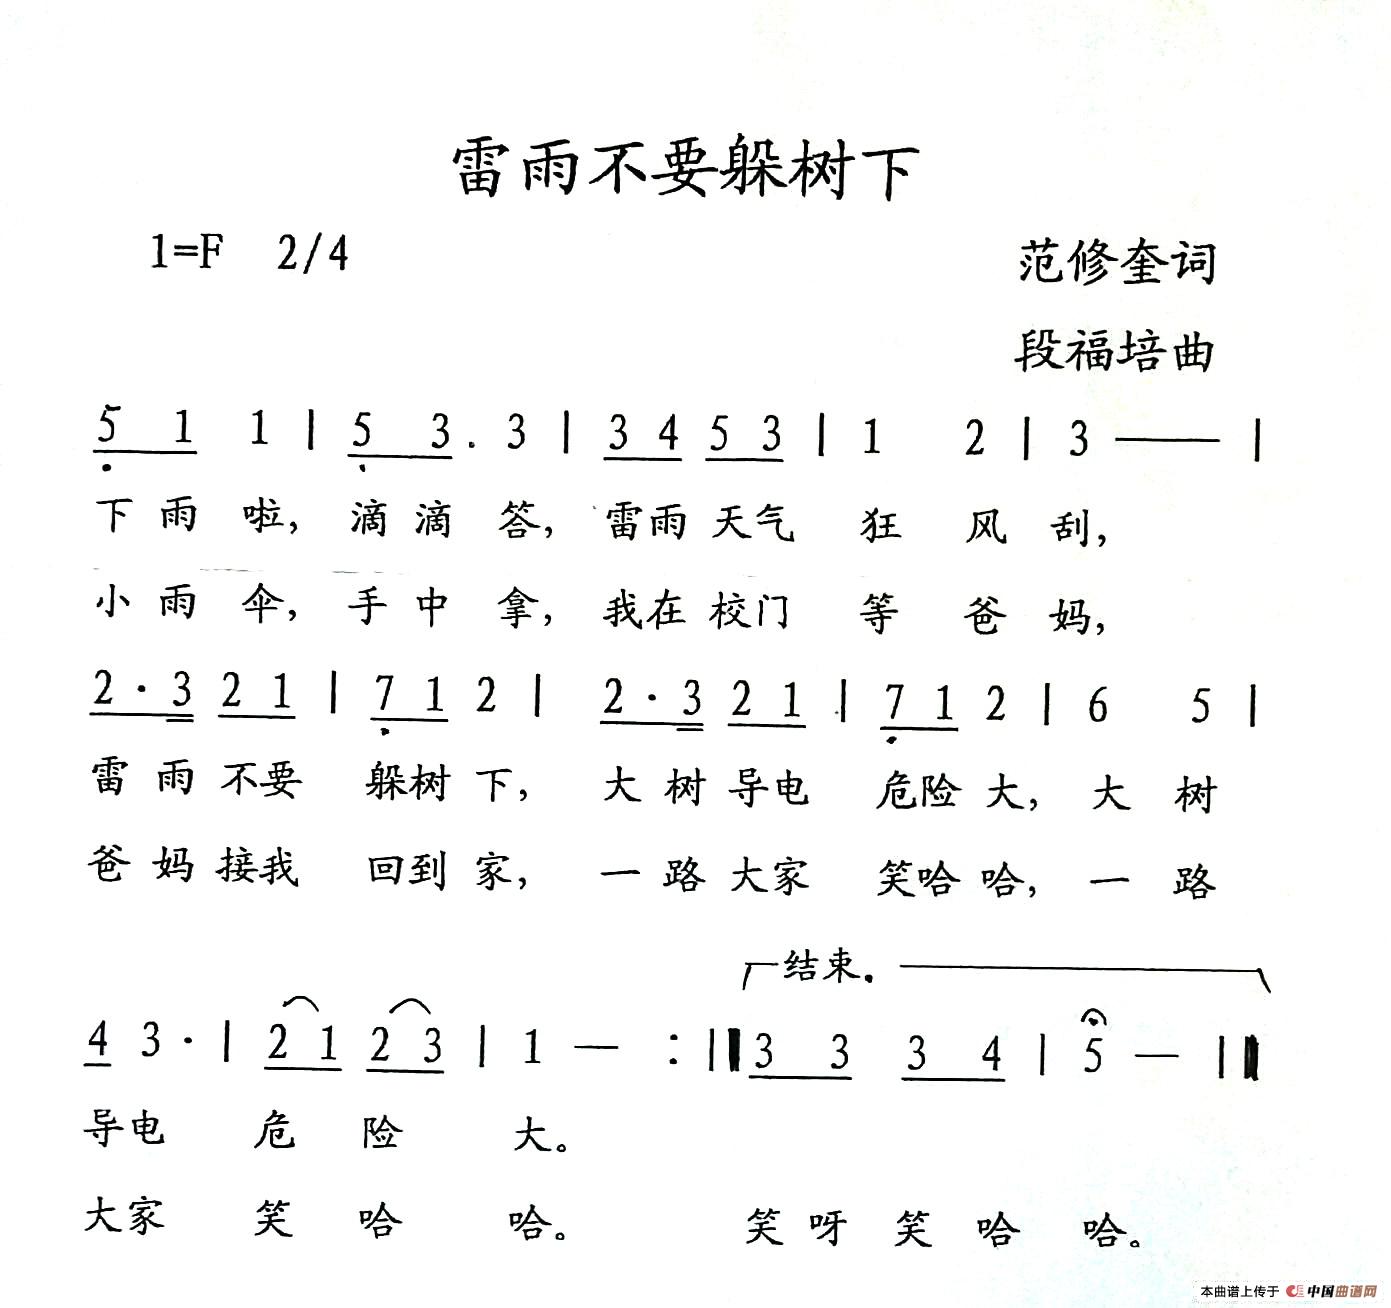 雷雨不要躲树下
1=F 2/4 范修奎词
段福培曲
5 1 1 | 5 3. 3 | 3 4 5 3 | 1 2 | 3 — |
下雨啦，滴滴答，雷雨天气狂风刮，
小雨伞，手中拿，我在校门等爸妈，
2·3 2 1 | 7 1 2 | 2·3 2 1 | 7 1 2 | 6 5 |
雷雨不要躲树下，大树导电危险大，大树
爸妈接我回到家，一路大家笑哈哈，一路
结束.
4 3· | 2 1 2 3 | 1 — :‖ 3 3 3 4 | 5 — ‖
导电危险大。
大家笑哈哈。笑呀笑哈哈。
本曲谱上传于 中国曲谱网